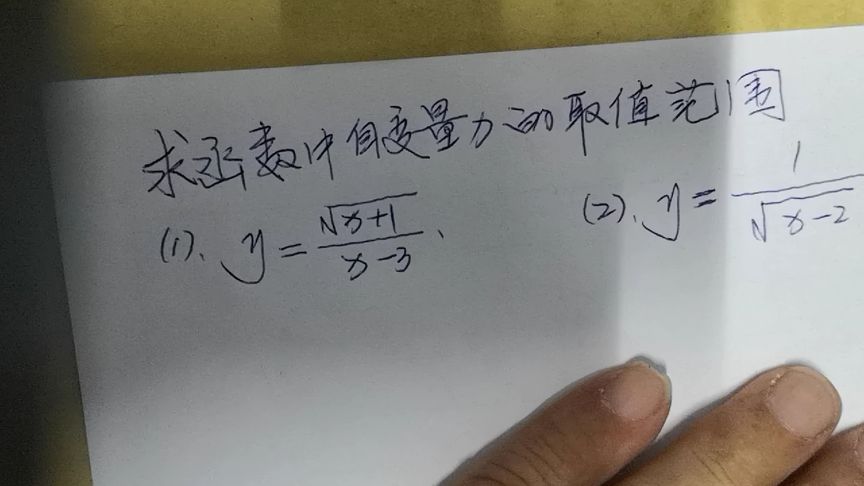 求函数中自变量x的取值范围
(1). y = \frac{\sqrt{x+1}}{x-3}.
(2). y = \frac{1}{\sqrt{x-2}}